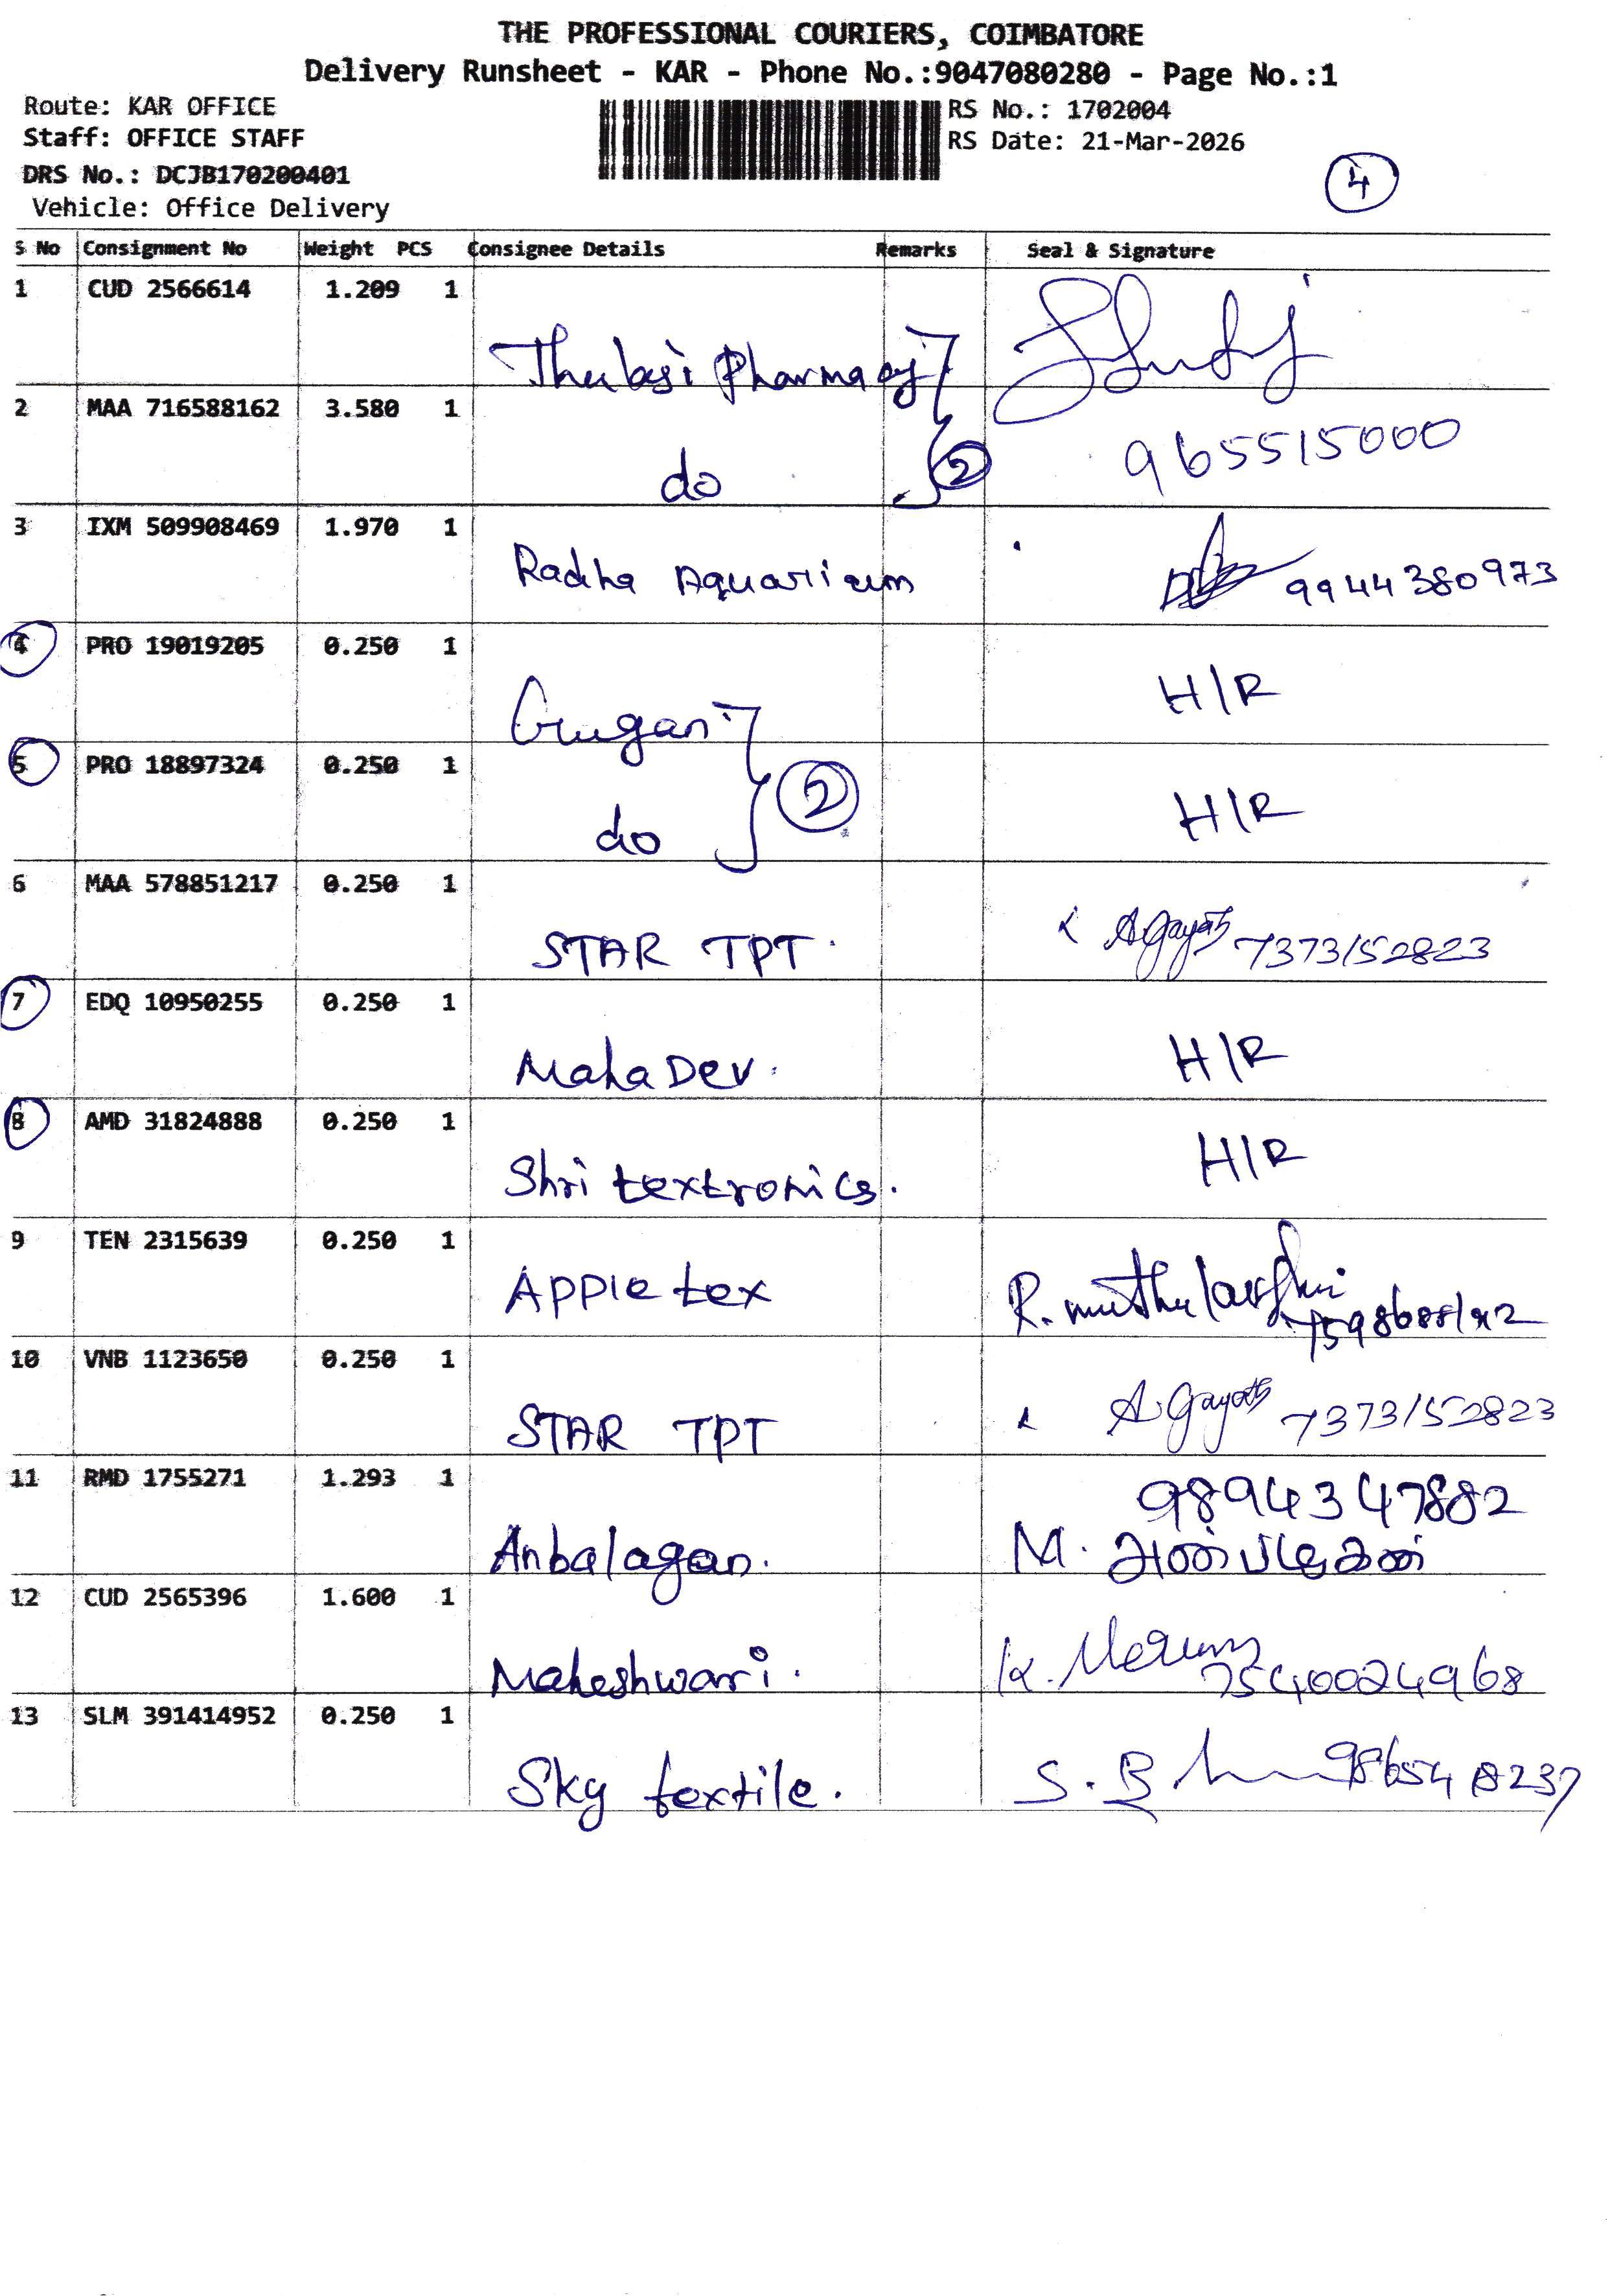 THE PROFESSIONAL COURIERS, COIMBATORE
Delivery Runsheet - KAR - Phone No.:9047080280 - Page No.:1
Route: KAR OFFICE
Staff: OFFICE STAFF
DRS No.: DCJB170200401
Vehicle: Office Delivery
RS No.: 1702004
RS Date: 21-Mar-2026
4
S No Consignment No Weight PCS Consignee Details Remarks Seal & Signature
1 CUD 2566614 1.209 1
Thulasi Pharmacy
2 MAA 716588162 3.580 1
do 2 965515000
3 IXM 509908469 1.970 1
Radha Aquarium 9944380973
4 PRO 19019205 0.250 1
Gugan H/R
5 PRO 18897324 0.250 1
do 2 H/R
6 MAA 578851217 0.250 1
STAR TPT. A.Gayat 7373152823
7 EDQ 10950255 0.250 1
MahaDev. H/R
8 AMD 31824888 0.250 1
Shri textronics. H/R
9 TEN 2315639 0.250 1
APPle tex R. muthulakshmi
10 VNB 1123650 0.250 1
STAR TPT A.Gayat 7373152823
11 RMD 1755271 1.293 1 9894347882
Anbalagan. M. அன்பழகன்
12 CUD 2565396 1.600 1
Maheshwari. K. 7540024968
13 SLM 391414952 0.250 1
Sky textile. S. B